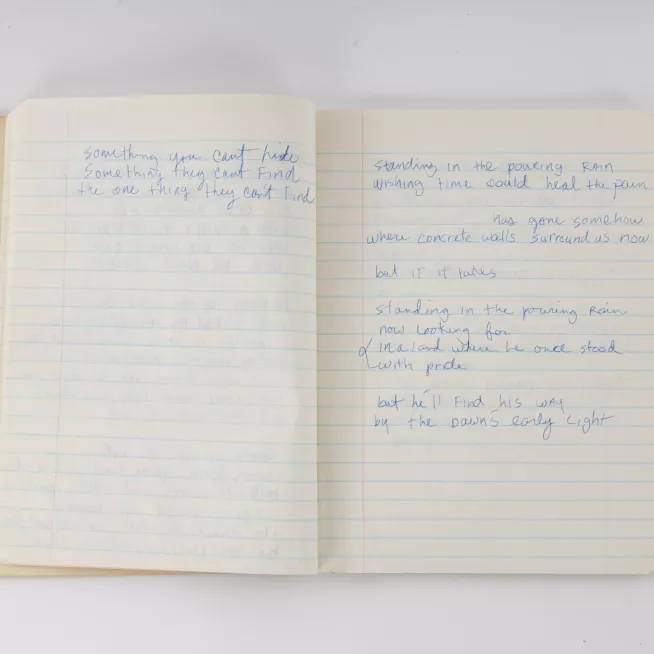 something you can't hide
something they can't Find
the one thing they can't Find
standing in the pouring RAIN
wishing time could heal the pain
has gone somehow
where concrete walls surround us now
but if it takes
standing in the pouring Rain
now looking for
in a land where he once stood
with pride
but he'll Find his WAY
by the DAWN'S early Light